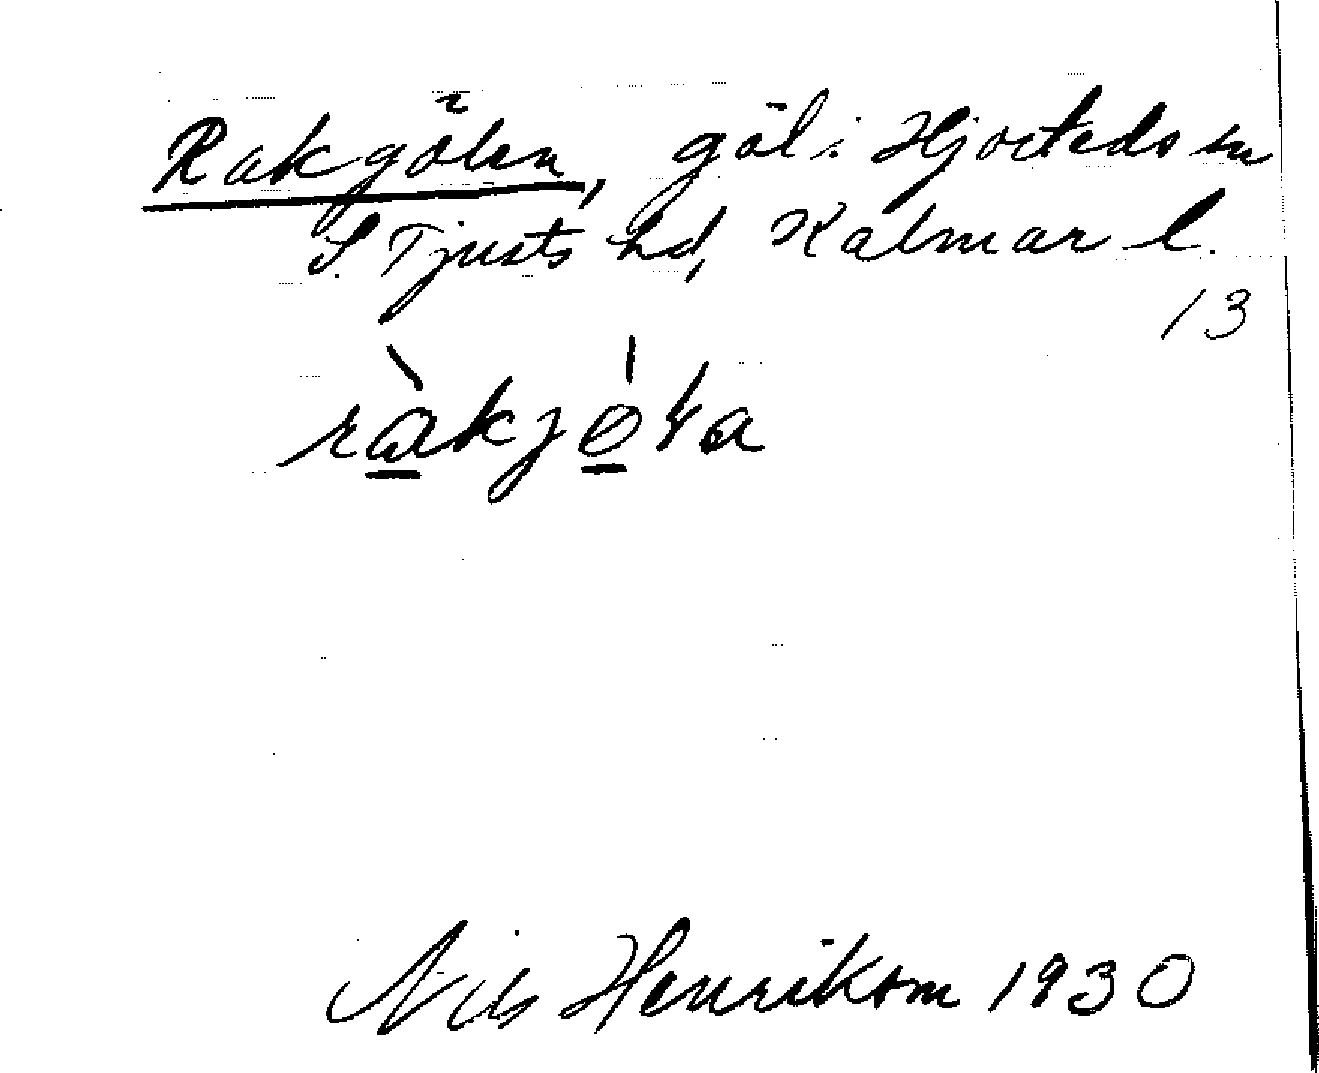 Rakgölen, göl i Hjorteds sn
S. Tjusts hd, Kalmar l.
13
Nils Henrikson 1930